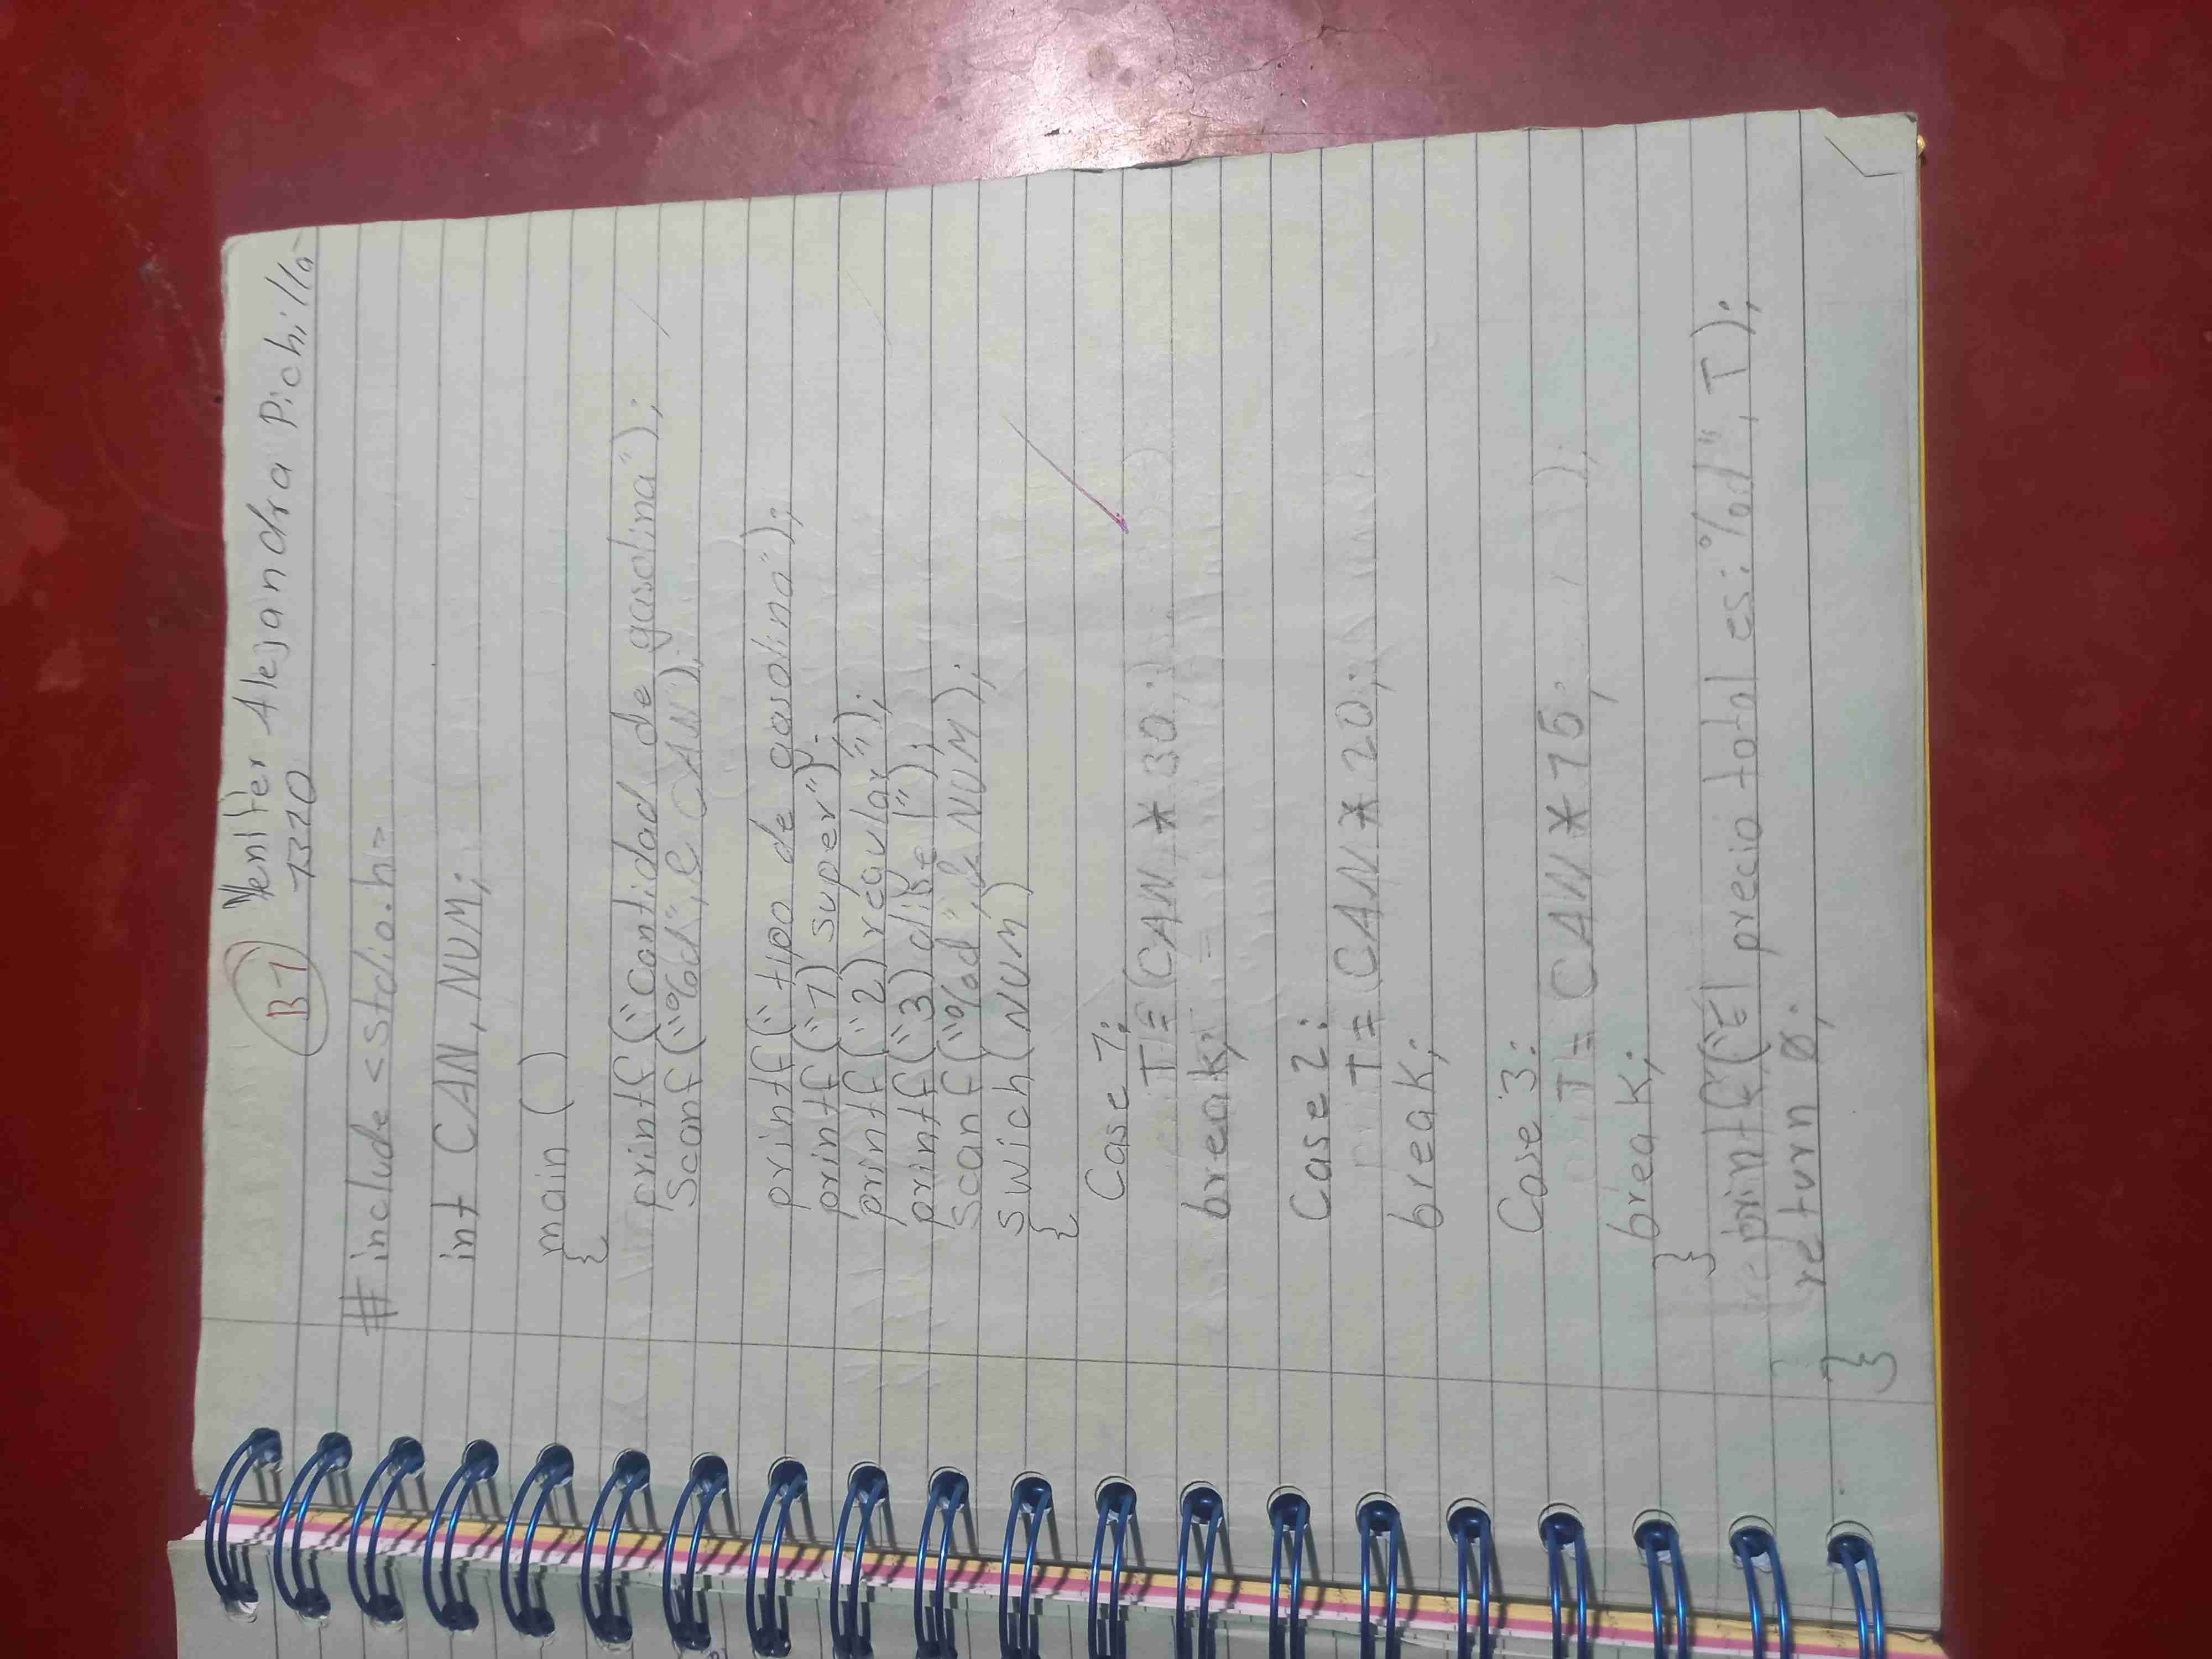 B1 Yenifer Alejandra Pichilla
1320
# include <stdio.h>
int CAN, NUM;
main ()
{
printf("cantidad de gasolina");
Scanf("%d",& CAN);
printf("tipo de gasolina");
printf("1) super");
printf("2) regular");
printf("3) di
Scanf("%d",& NUM);
swich(NUM)
{
Case 1:
T=(CAN * 30;
break;
Case 2:
T= CAN * 20;
break;
Case 3:
T= CAN * 15;
break;
}
printf("El precio total es: %d", T);
return 0;
}